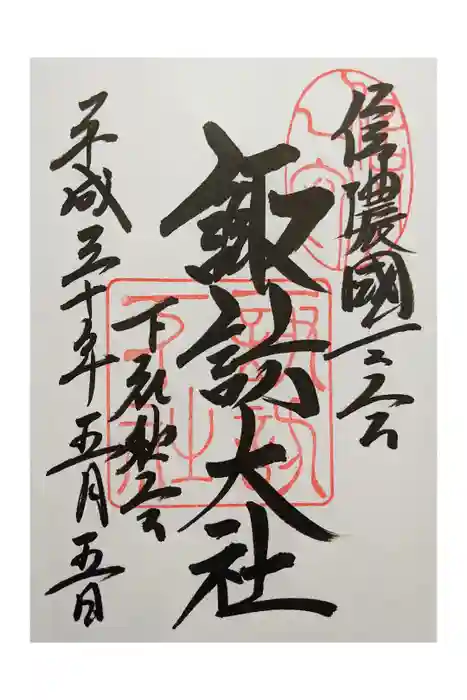 信濃國一之宮
諏訪大社
下社秋之宮
平成三十年五月五日